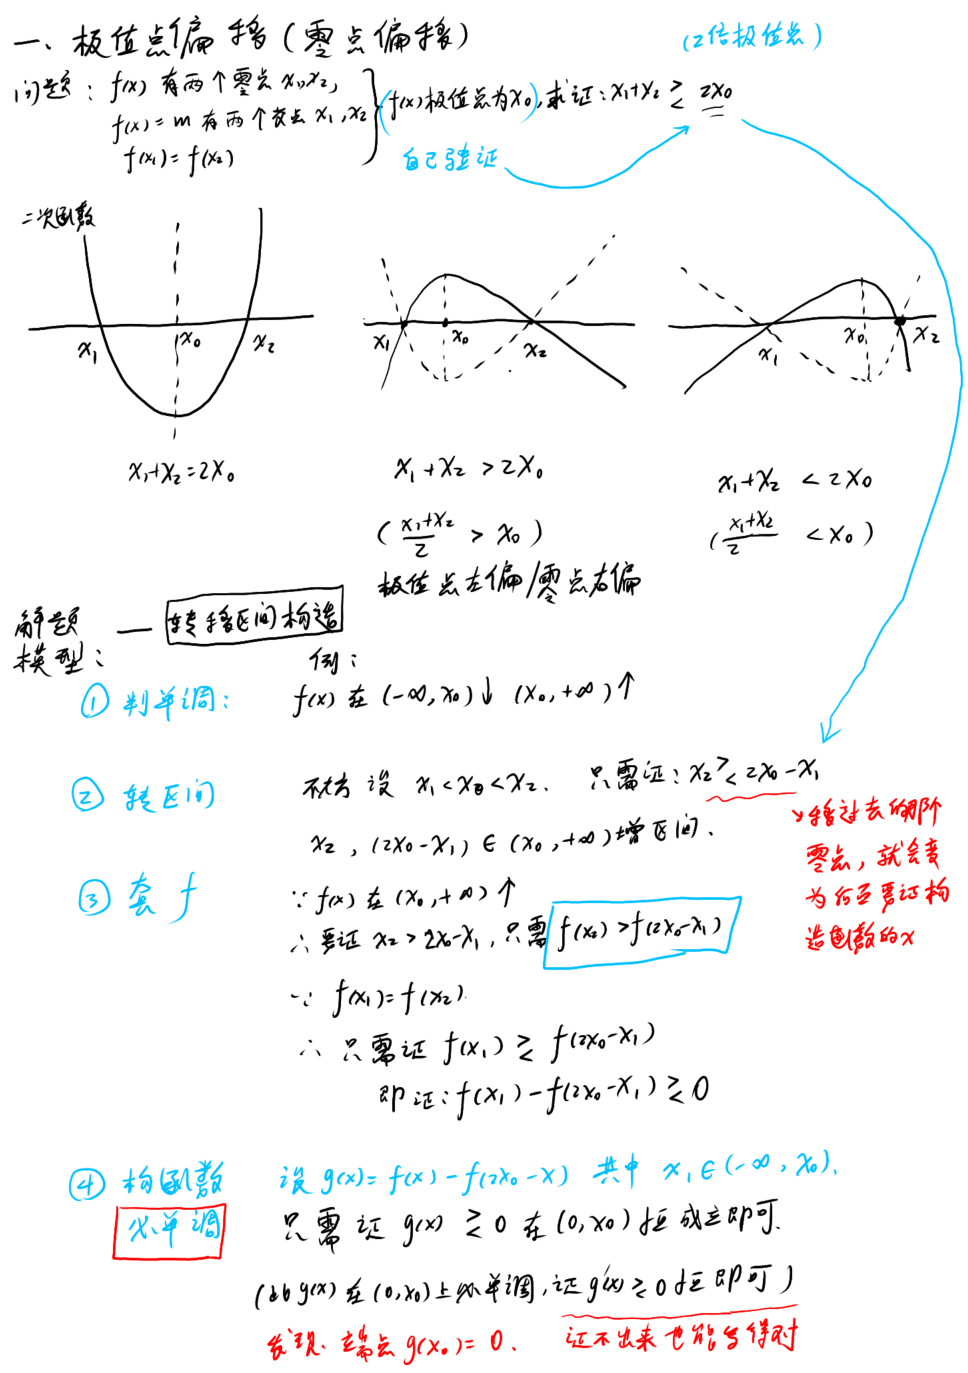 一、极值点偏移(零点偏移)
(2倍极值点)
问题: f(x) 有两个零点 x₁,x₂,
f(x) = m 有两个交点 x₁,x₂
f(x₁) = f(x₂)
(f(x)极值点为x₀), 求证: x₁+x₂ ≷ 2x₀
自己验证
二次函数
x₁ x₀ x₂
x₁ x₀ x₂
x₁ x₀ x₂
x₁+x₂=2x₀
x₁+x₂ >2x₀
x₁+x₂ <2x₀
(x₁+x₂/2 > x₀)
(x₁+x₂/2 < x₀)
极值点左偏/零点右偏
解题模型: — 转移区间构造
例:
① 判单调: f(x) 在 (-∞, x₀)↓ (x₀, +∞)↑
② 转区间 不妨设 x₁<x₀<x₂. 只需证: x₂ ≷ 2x₀-x₁
x₂, (2x₀-x₁) ∈ (x₀, +∞)增区间.
移过去的那个
零点, 就会变
为后面要证构
造函数的x
③ 套 f ∵ f(x) 在 (x₀, +∞)↑
∴ 要证 x₂ > 2x₀-x₁, 只需 f(x₂) > f(2x₀-x₁)
∵ f(x₁)=f(x₂)
∴ 只需证 f(x₁) ≷ f(2x₀-x₁)
即证: f(x₁)-f(2x₀-x₁) ≷ 0
④ 构函数 设 g(x)= f(x)-f(2x₀-x) 其中 x₁∈(-∞, x₀).
必单调 只需证 g(x) ≷ 0 在 (0, x₀) 恒成立即可.
g(x) 在 (0, x₀)上必单调, 证 g'(x) ≷ 0 恒即可)
发现: 端点 g(x₀)= 0. 证不出来也能写得对